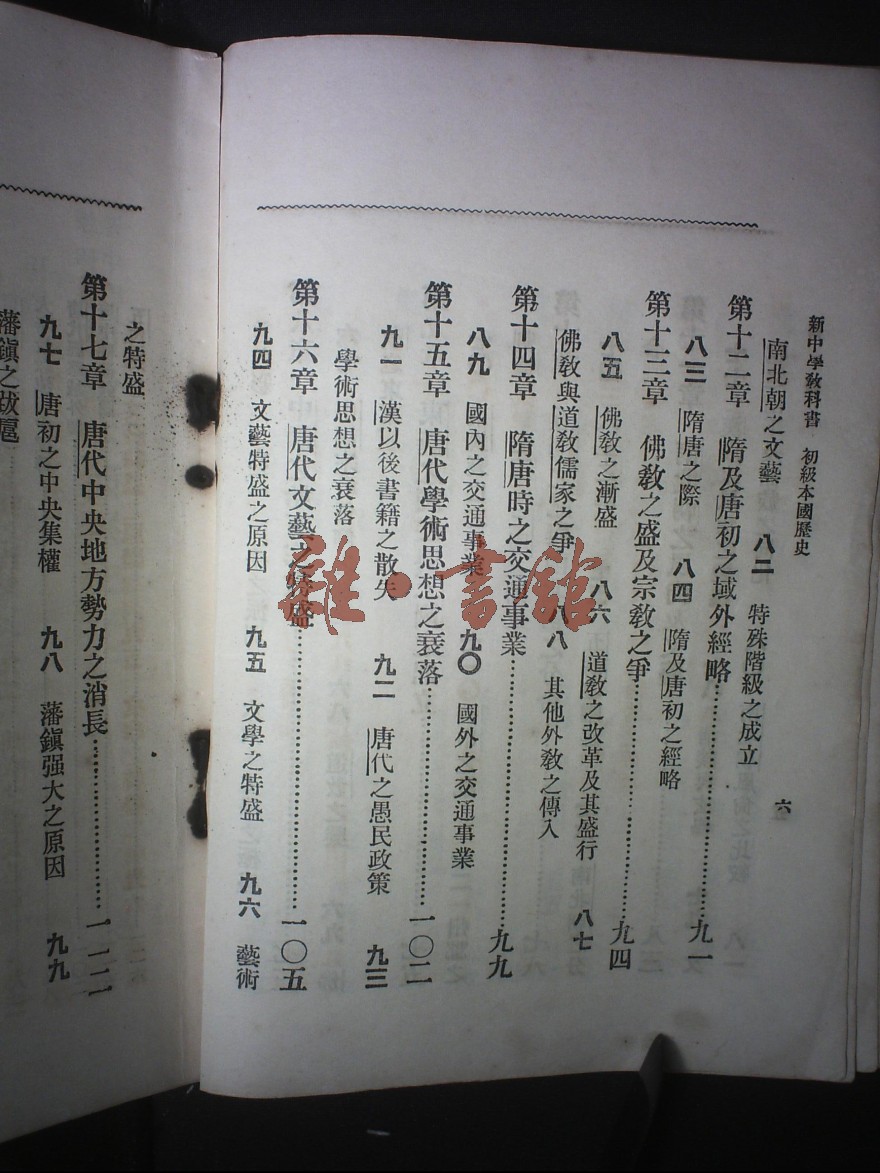 新中學敎科書 初級本國歷史 六
南北朝之文藝 八二 特殊階級之成立
第十二章 隋及唐初之域外經略 九一
八三 隋唐之際 八四 隋及唐初之經略
第十三章 佛敎之盛及宗敎之爭 九四
八五 佛敎之漸盛 八六 道敎之改革及其盛行 八七
佛敎與道敎儒家之爭 八八 其他外敎之傳入
第十四章 隋唐時之交通事業 九九
八九 國內之交通事業 九〇 國外之交通事業
第十五章 唐代學術思想之衰落 一〇二
九一 漢以後書籍之散失 九二 唐代之愚民政策 九三
學術思想之衰落
第十六章 唐代文藝之特盛 一〇五
九四 文藝特盛之原因 九五 文學之特盛 九六 藝術
之特盛
第十七章 唐代中央地方勢力之消長 一一二
九七 唐初之中央集權 九八 藩鎭强大之原因 九九
藩鎭之跋扈
雜·書館